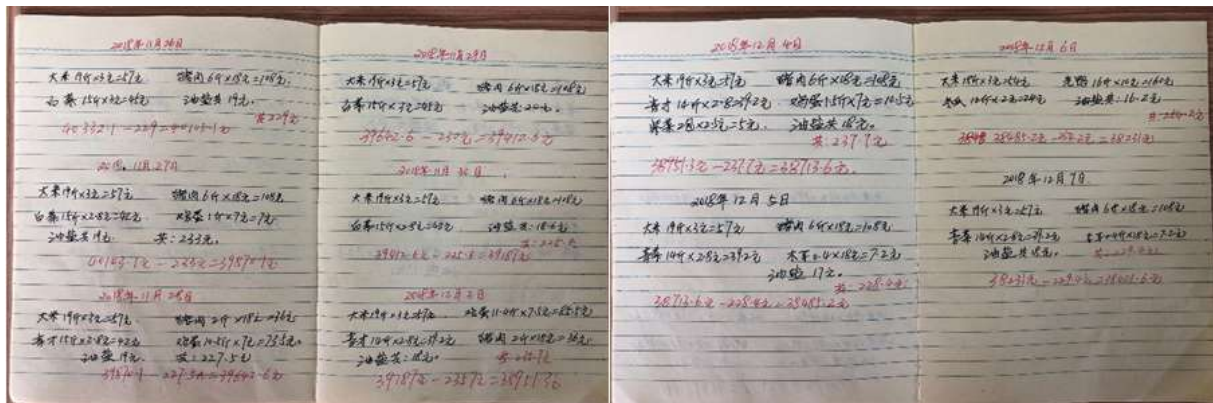 2018年11月26日
大米19斤×3元=57元 猪肉6斤×18元=108元
白菜15斤×3元=45元 油盐共19元。
共229元
40332.1-229=40103.1元
11月27日
大米19斤×3元=57元 猪肉6斤×18元=108元
白菜15斤×2.8元=42元 鸡蛋1斤×7元=7元
油盐共19元 共:233元。
40103.1元-233元=39870.1元
2018年11月28日
大米19斤×3元=57元 猪肉2斤×18元=36元
15斤×2.8元=42元 鸡蛋10.5斤×7元=73.5元
油盐19元 共:227.5元
39870.1-227.5元=39642.6元
2018年11月29日
大米19斤×3元=57元 猪肉6斤×18元=108元
白菜15斤×3元=45元 油盐共:20元。
39642.6-230元=39412.6元
2018年11月30日
大米19斤×3元=57元 猪肉6斤×18元=108元
白菜15斤×2.8元=42元 油盐共:18.6元
共:225.6元
39412.6元-225.6=39187元
2018年12月3日
大米19斤×3元=57元 鸡蛋11.4斤×7.5元=85.5元
14斤×2.8元=39.2元 猪肉2斤×18元=36元
油盐共:18元。
39187元-235.7元=38951.3元
2018年12月4日
大米19斤×3元=57元 猪肉6斤×18元=108元
14斤×2.8=39.2元 鸡蛋1.5斤×7元=10.5元
×2.5元=5元. 油盐共18元。
共:237.7元
38951.3元-237.7元=38713.6元.
2018年12月5日
大米19斤×3元=57元 猪肉6斤×18元=108元
青菜14斤×2.8元=39.2元 木耳0.4×18元=7.2元
油盐17元。
共:228.4元
38713.6元-228.4元=38485.2元
2018年12月6日
大米18斤×3元=54元 16斤×10元=160元
冬瓜12斤×2元=24元 油盐共:16.2元
共:254.2元
38485.2元-254.2元=38231元
2018年12月7日
大米19斤×3元=57元 猪肉6斤×18元=108元
青菜14斤×2.8元=39.2元 木耳0.4斤×18元=7.2元
油盐共18元。 共:229.4元
38231元-229.4元=38001.6元